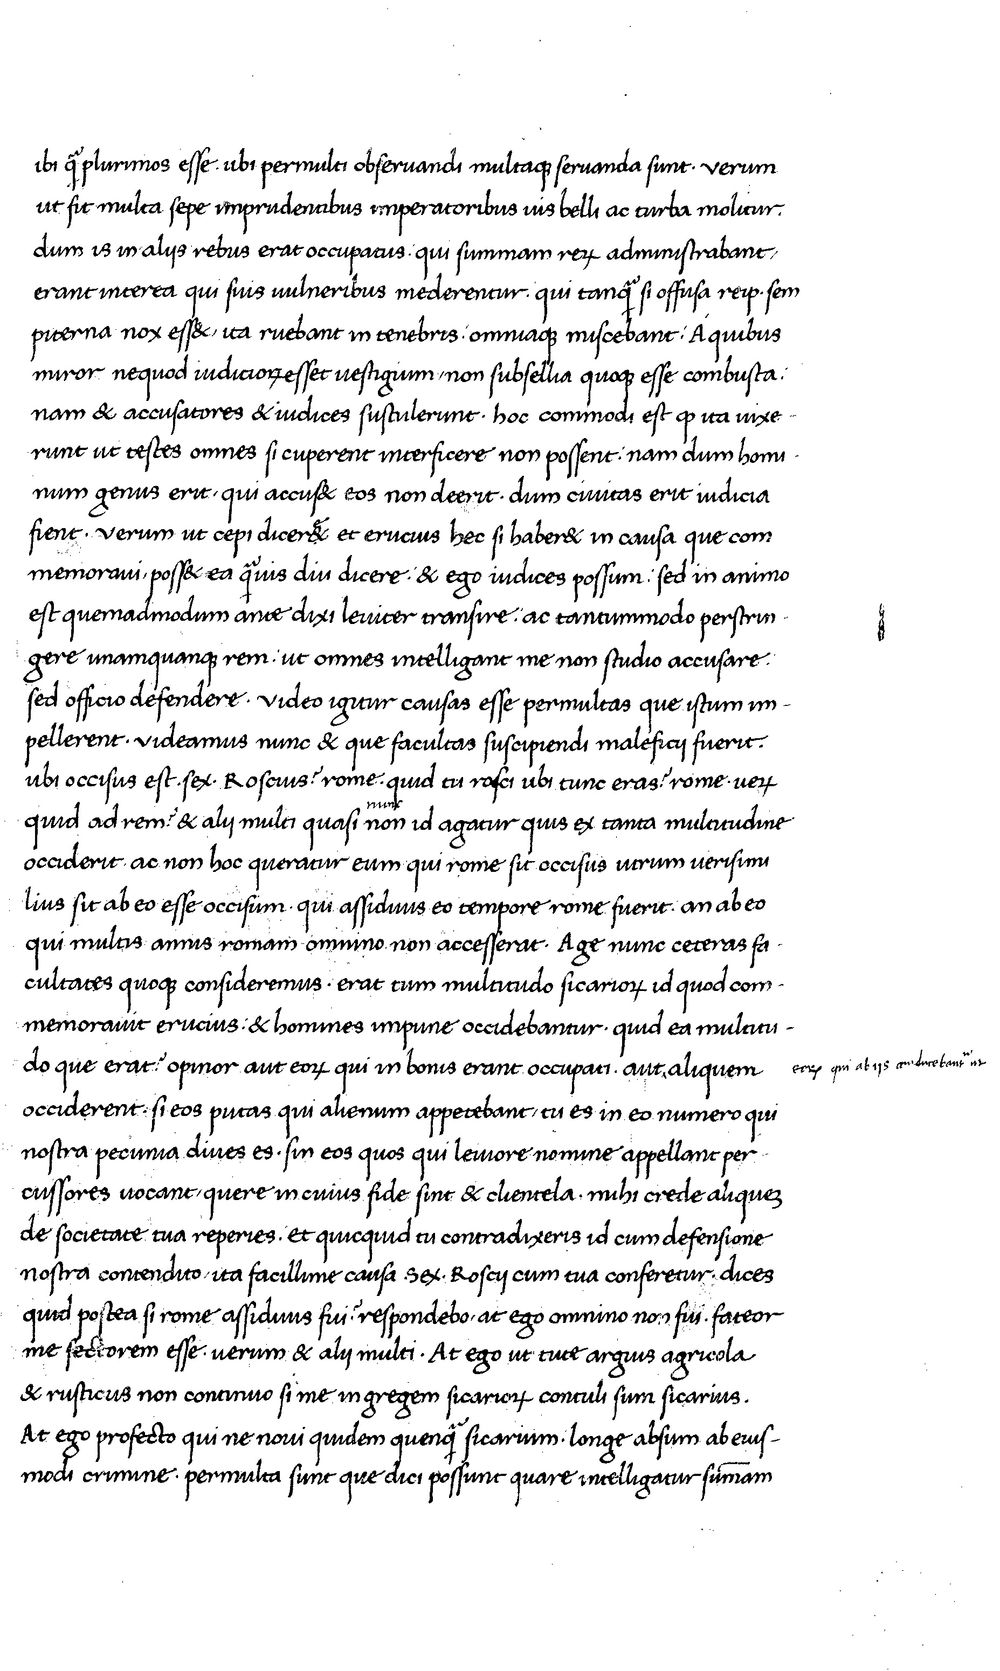 ibi qͣ plurimos esse · ubi permulti obseruandi multaqꝫ seruanda sunt · verum
ut sit multa sepe imprudentibus imperatoribus uis belli ac turba molitur ·
dum is in aliis rebus erat occupatus · qui summam reꝝ administrabant /
erant interea qui suis uulneribus mederentur · qui tanqͣ si offusa reip · sem
piterna nox ess& / ita ruebant in tenebris : omniaqꝫ miscebant : A quibus
miror nequod iudicioꝝ esset uestigium / non subsellia quoqꝫ esse combusta :
nam & accusatores & iudices sustulerunt · hoc commodi est ꝙ ita uixe -
runt ut testes omnes si cuperent interficere non possent : nam dum homi -
num genus erit / qui accus& eos non deerit · dum ciuitas erit iudicia
fient · verum ut cepi dicere & et erucius hec si haber& in causa que com
memoraui / poss& ea qͣuis diu dicere : & ego iudices possum : sed in animo
est quemadmodum ante dixi leuiter transire : ac tantummodo perstrin -
gere unamquanqꝫ rem : ut omnes intelligant me non studio accusare :
sed officio defendere · video igitur causas esse permultas que istum im -
pellerent · videamus nunc & que facultas suscipiendi maleficij fuerit ·
ubi occisus est · sex · Roscius ? rome · quid tu rosci ubi tunc eras ? rome · ueꝝ
nunc
quid ad rem ? & alij multi quasi non id agatur quis ex tanta multitudine
occiderit · ac non hoc queratur eum qui rome sit occisus utrum uerisimi
lius sit ab eo esse occisum · qui assiduus eo tempore rome fuerit · an ab eo
qui multis annis romam omnino non accesserat · Age nunc ceteras fa -
cultates quoqꝫ consideremus · erat tum multitudo sicarioꝝ id quod com -
memorauit erucius : & homines impune occidebantur · quid ea multitu -
do que erat ? opinor aut eoꝝ qui in bonis erant occupati · aut aliquem
eoꝝ qui ab iis conducebantᷣ ut
occiderent : si eos putas qui alienum appetebant / tu es in eo numero qui
nostra pecunia diues es · sin eos quos qui leuiore nomine appellant per
cussores uocant / quere in cuius fide sint & clientela · mihi crede aliqueꝫ
de societate tua reperies · et quicquid tu contradixeris id cum defensione
nostra contendito / ita facillime causa Sex · Roscij cum tua conferetur · dices
quid postea si rome assiduus fui ? respondebo / at ego omnino non fui · fateor
me sectorem esse · uerum & alij multi · At ego ut tute arguis agricola
& rusticus non continuo si me in gregem sicarioꝝ contuli sum sicarius ·
At ego profecto qui ne noui quidem quenqͣ sicarium · longe absum ab eius -
modi crimine · permulta sunt que dici possunt quare intelligatur sum̅am